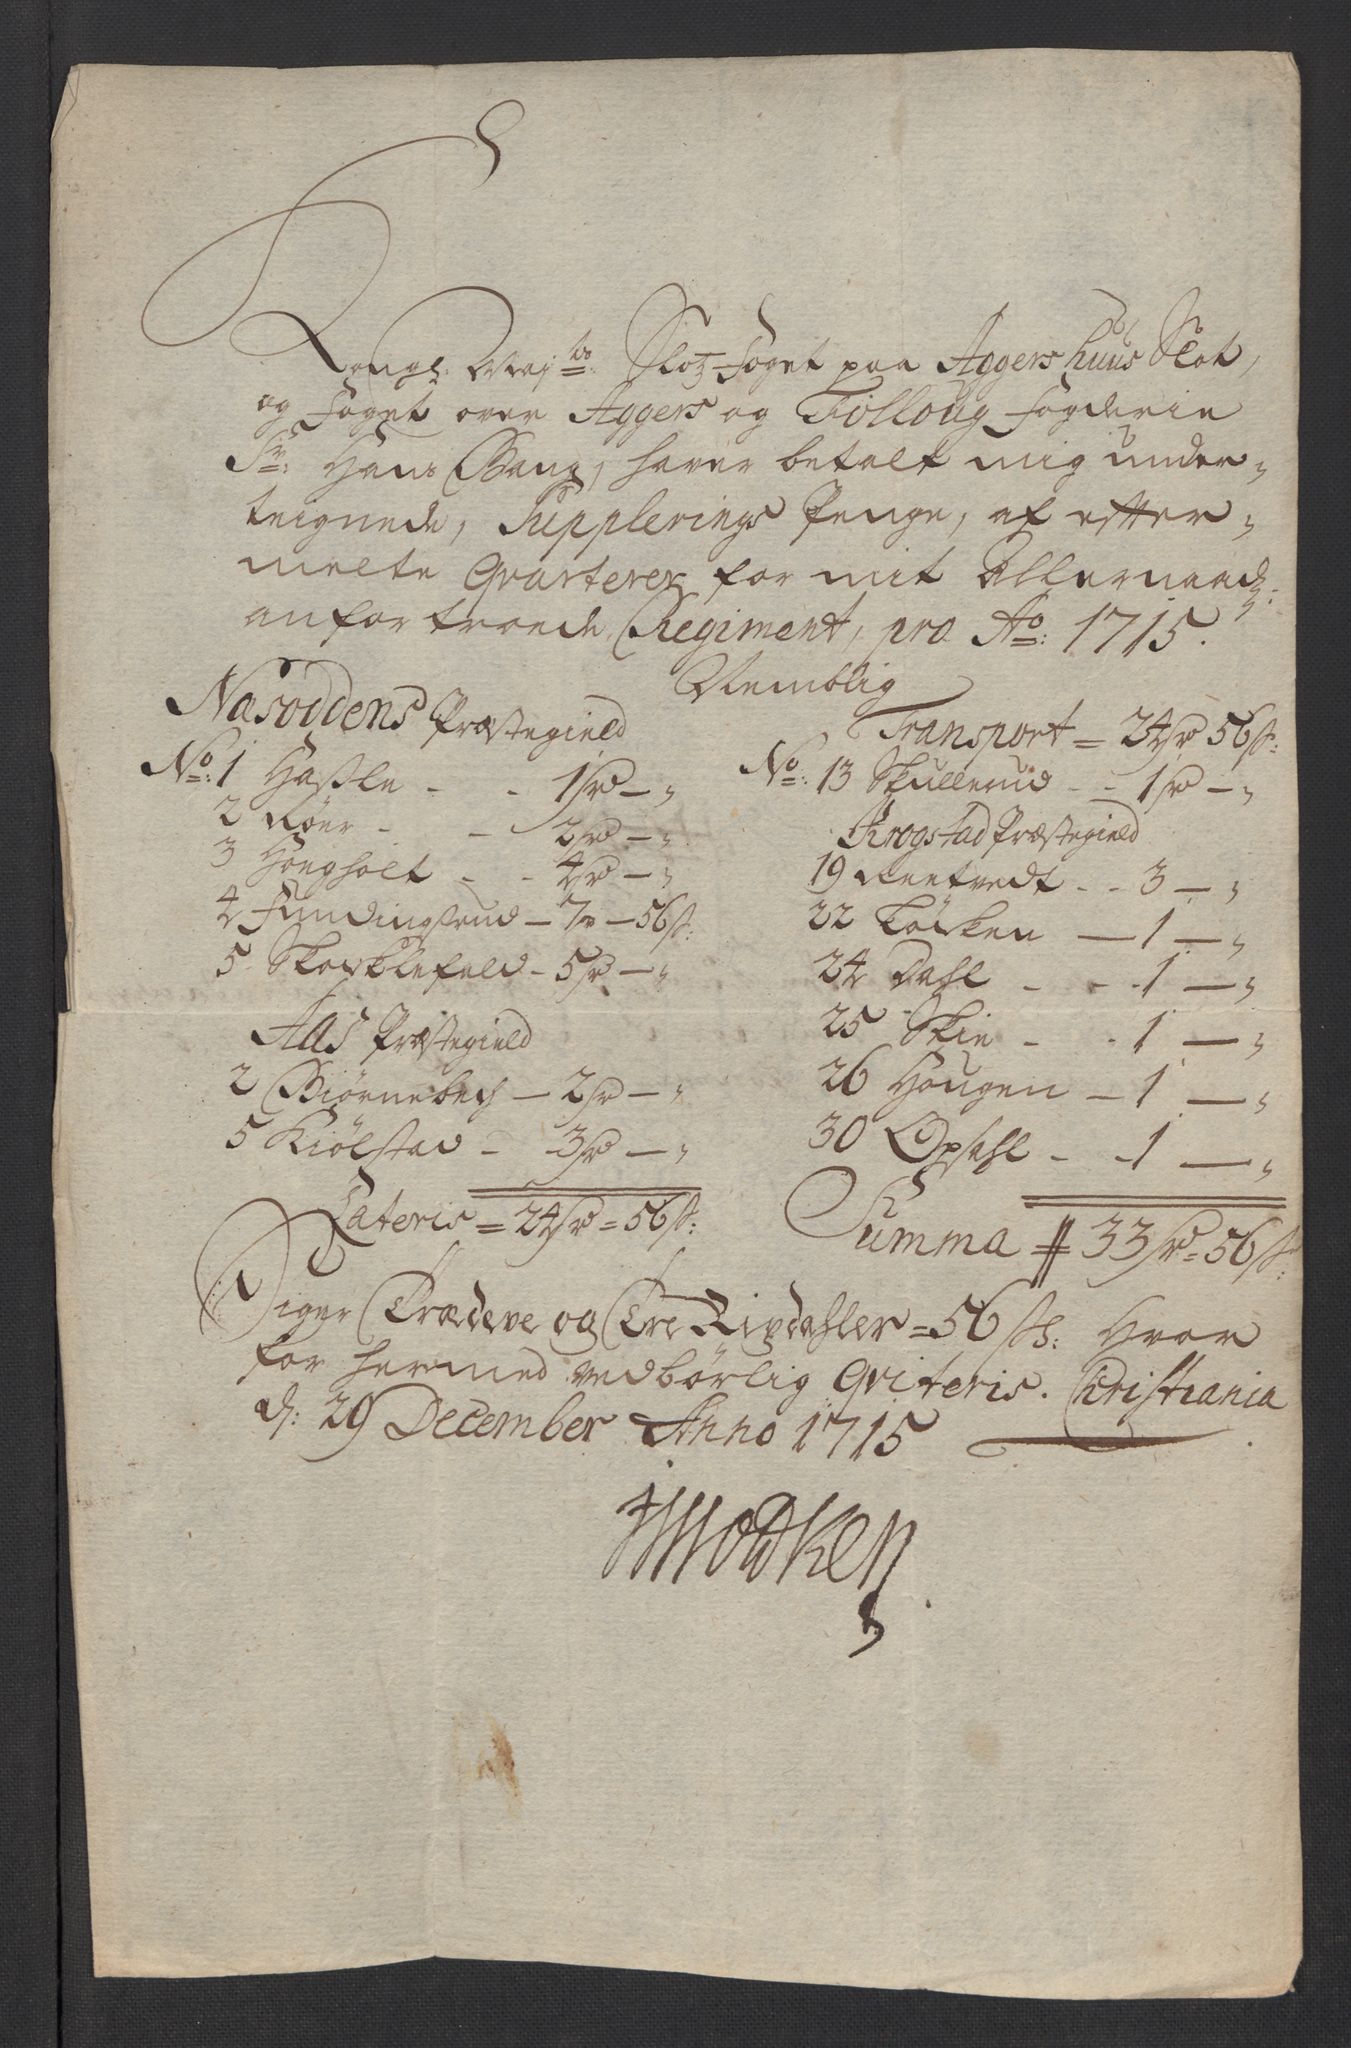 Kongl: Mayts: Slotz Foget paa Aggershuus Slot,
og Foget over Aggers og Folloug Fogderie
Sr: Hans Bang, haver betalt mig under-
teignede, Supplerings Penge, af efter-
melte Qvarterer for mit Allernaadz:
anfortroede Regiment, pro Ao: 1715.
Nemblig
Nasoddens Præstegield
No: 1 Hasle - - 1 Rd - "
2 Röer - - 2 Rd - "
3 Hougholt - - 4 Rd - "
4 Fundingsrud - 7 R - 56 ß:
5 Skochlefald - 5 Rd - "
Aas Præstegield
2 Biørnebech - 2 Rd - "
5 Kiølstad - - 3 Rd - "
Lateris = 24 Rd = 56 ß:
Transport = 24 Rd 56 ß:
No: 13 Skullerud - - 1 Rd - "
Krogstad Præstegield
19 Reetvedt - - 3 - "
22 Løcken - 1 - "
24 Dahl - - - 1 - "
25 Skie - - 1 - "
26 Hougen - 1 - "
30 Opsahl - - 1 - "
Summa # 33 Rd = 56 ß:
Siger Tredeve og Tre Rixdahler = 56 ß: Hvor
for hermed vedbørlig Qviteris. Christiania
d: 29 December Anno 1715